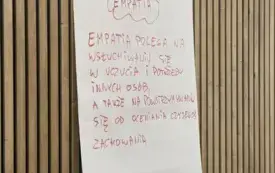 EMPATIA
EMPATIA POLEGA NA
WSŁUCHIWANIU SIĘ
W UCZUCIA I POTRZEBY
INNYCH OSÓB,
A TAKŻE NA POWSTRZYMYWANIU
SIĘ OD OCENIANIA CZYJEGOŚ
ZACHOWANIA